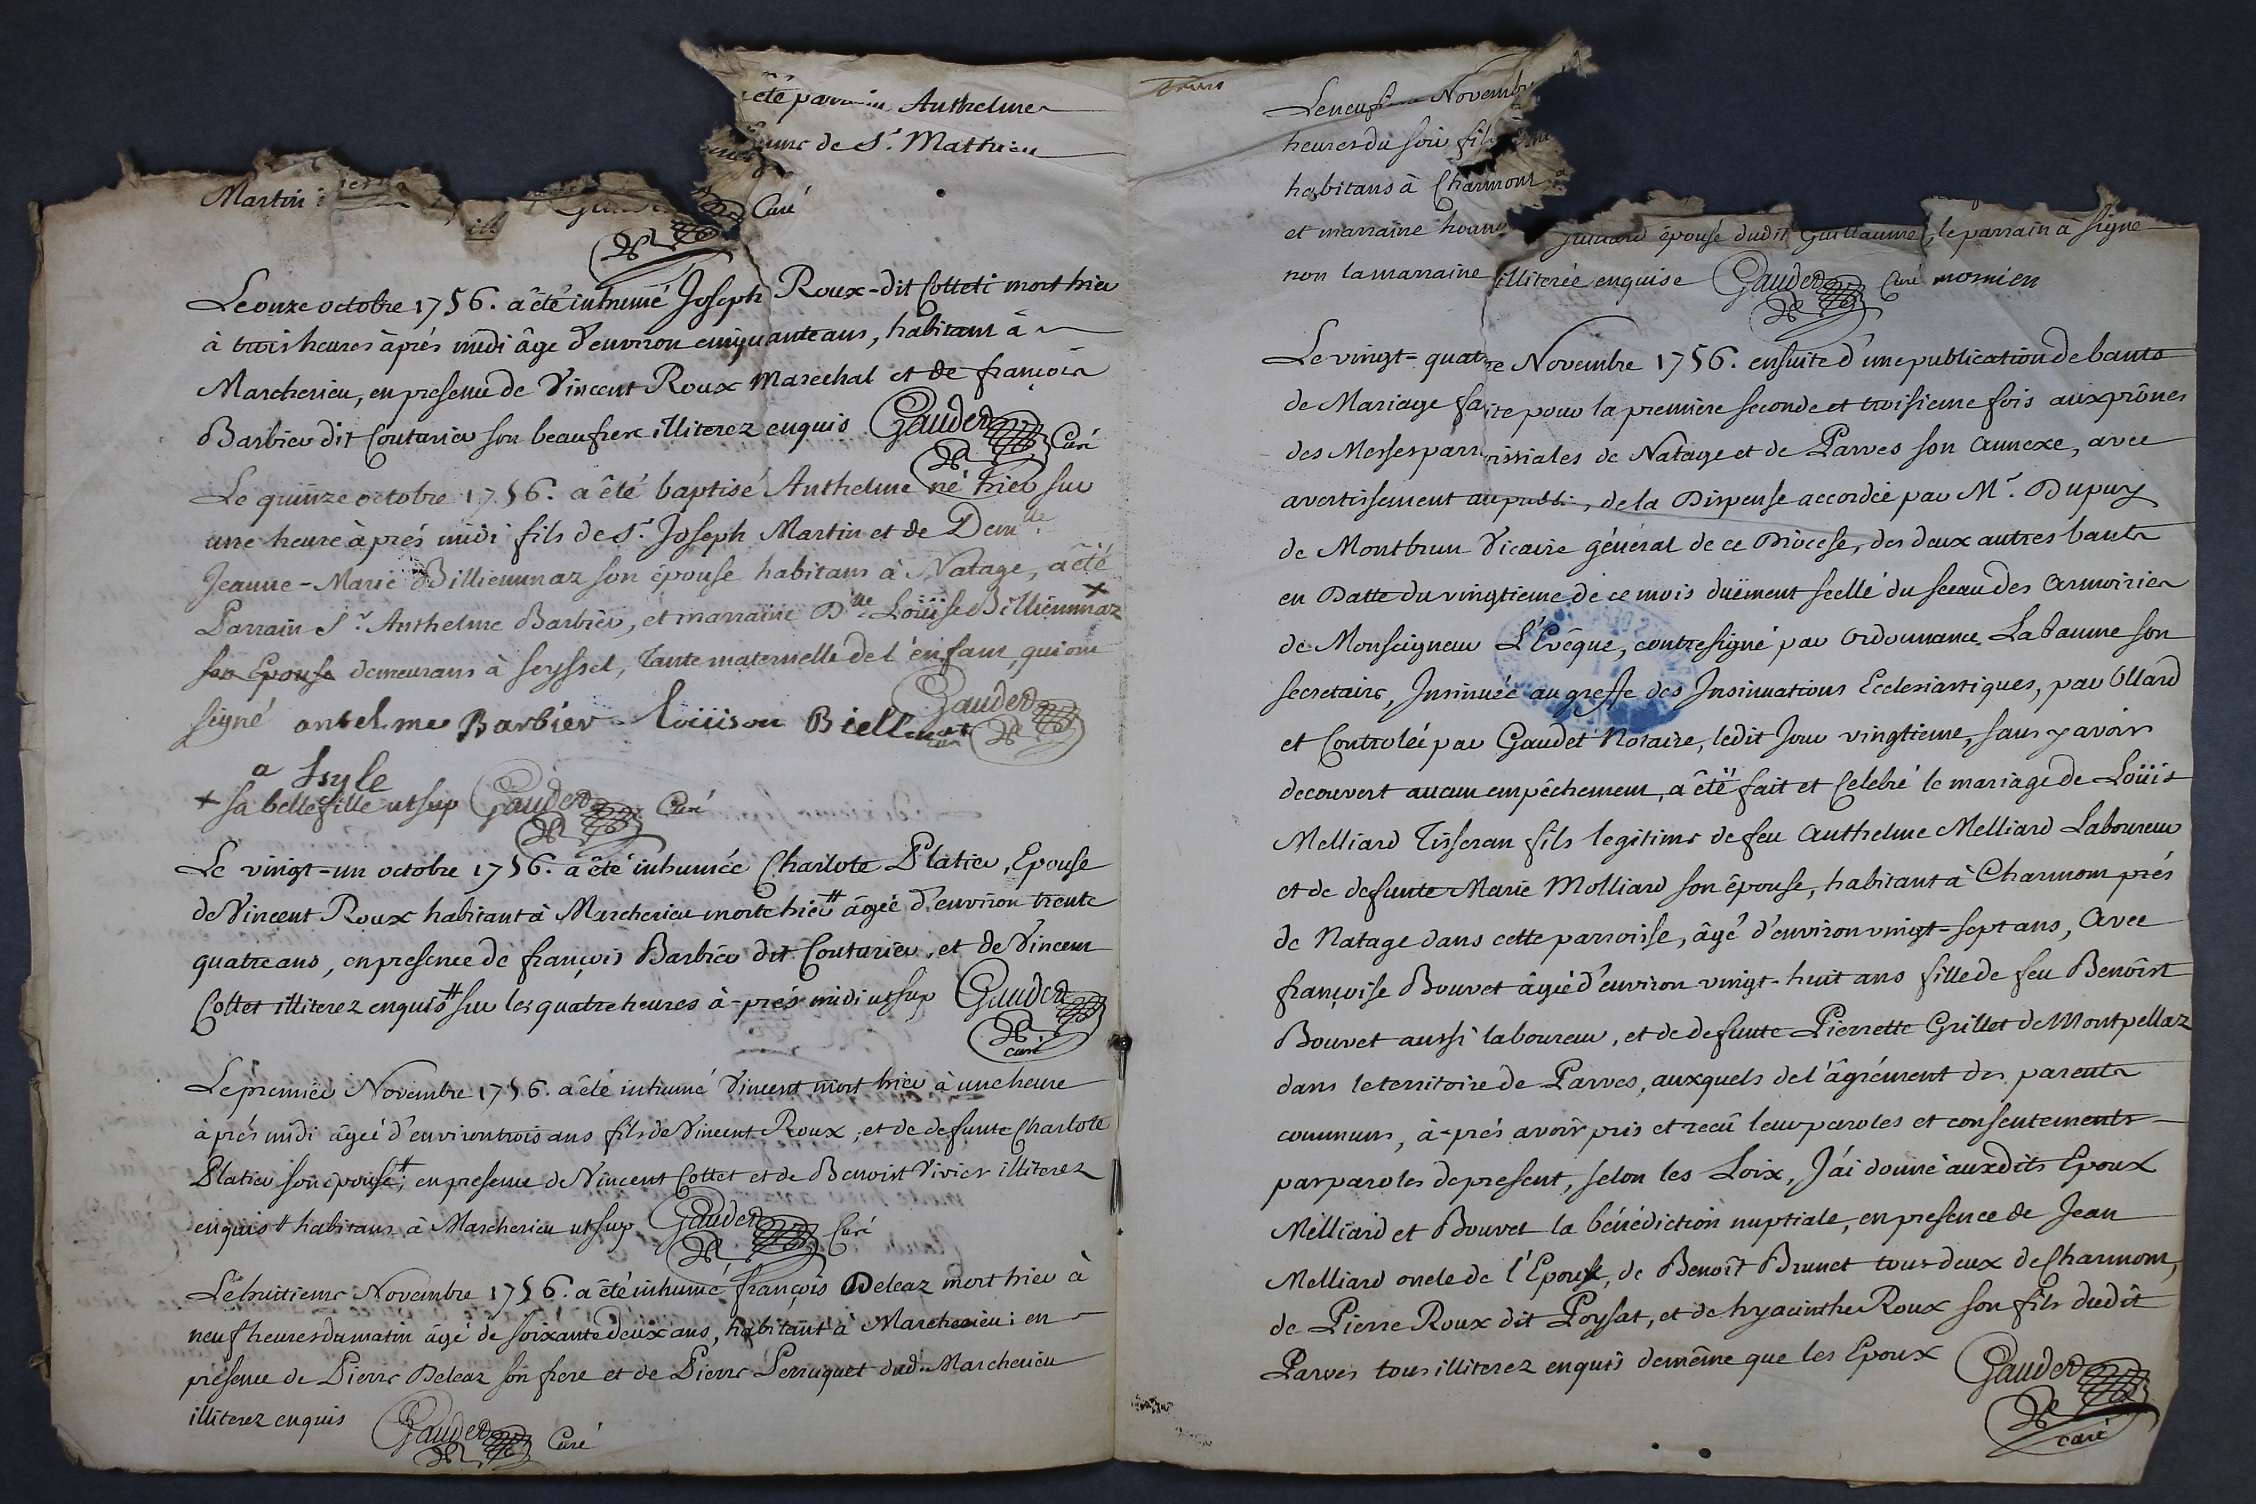 été parrain Anthelme
de Sr. Mathieu
Martin
Curé
Le onze octobre 1756. a été inhumé Joseph Roux-dit Collet mort hier
à trois heures àprés midi âge d'environ cinquante ans, habitant à
Marcherieu, en presence de Vincent Roux Marechal et de françois
Barbier dit Couturier son beaufrere illiterez enquis Gaudet Curé
Le quinze octobre 1756. a été baptisé Anthelme né hier sur
une heure àprés midi fils de Sr. Joseph Martin et de Demlle
Jeanne-Marie Billiemnaz son épouse habitans à Natage, a été
Parrain Sr. Anthelme Barbier, et marraine Dlle Loüise Billiemnaz +
son Epouse demeurans à Seyssel, Tante maternelle de l'énfant, qui ont
signé antelme Barbier Loüison Biell Gaudet curé
+ sa bellefille utsup Gaudet Curé
Le vingt=un octobre 1756. a été inhumée Charlote Platier, Epouse
de Vincent Roux habitant à Marcherieu morte hier # âgée d'environ trente
quatre ans, en presence de françois Barbier dit Couturier, et de Vincent
Collet illiterez enquis # sur les quatre heures à-prés midi utsup Gaudet
curé
Le premier Novembre 1756. a été inhumé Vincent mort hier à une heure
àprés midi âgée d'environ trois ans fils de Vincent Roux, et de defunte Charlote
Platier son épouse #; en presence de Vincent Collet et de Benoist Vivier illiterez
enquis # habitans à Marcherieu utsup Gaudet Curé
Le huitieme Novembre 1756. a été inhumé françois Deleaz mort hier à
neuf heures du matin âgé de soixante deux ans, habitant à Marcherieu: en
présence de Pierre Deleaz son frere et de Pierre Perruquet dud. Marcherieu
illiterez enquis Gaudet Curé
Le neuf Novembre
heures du soir fils
habitans à Charmont
et marraine épouse dudit Guillaume, le parrain à signé
non la marraine illiterée enquise Gaudet Curé mornieu
Le vingt=quatre Novembre 1756. ensuite d'une publication de bants
de Mariage faite pour la premiere seconde et troisieme fois aux prônes
des Messes parroissiales de Natage et de Parves son annexe, avec
avertissement au publi, de la Dispense accordée par Mr. Dupuy
de Montbrun Vicaire général de ce Diocese, des deux autres bants
en Datte du vingtieme de ce mois duëment scellé du sceau des armoiries
de Monseigneur L'Evêque, contresigné par Ordonnance Labaume son
secretaire, Insinuée au greffe des Insinuations Ecclesiastiques, par Ollard
et Controlée par Gaudet Notaire, ledit Jour vingtieme, sans y avoir
decouvert aucun empêchement, a été fait et Celebré le mariage de Loüis
Melliard Tisseran fils legitime de feu Anthelme Melliard Laboureur
et de defunte Marie Molliard son épouse, habitant à Charmont prés
de Natage dans cette parroisse, âgé d'environ vingt=sept ans, Avec
françoise Bouvet âgée d'environ vingt-huit ans fille de feu Benoîst
Bouvet aussi laboureur, et de defunte Pierrette Grillet de Montpellaz
dans le territoire de Parves, auxquels de l'âgrément des parents
communs, à-prés avoir pris et recû leur paroles et consentements
par paroles de present, selon les Loix, J'ái donné auxdits Epoux
Melliard et Bouvet la bénédiction nuptiale, en presence de Jean
Melliard oncle de l'Epoux, de Benoît Brunet tous deux de Charmont,
de Pierre Roux dit Poysat, et de hyacinthe Roux son fils dudit
Parves tous illiterez enquis demême que les Epoux Gaudet
curé